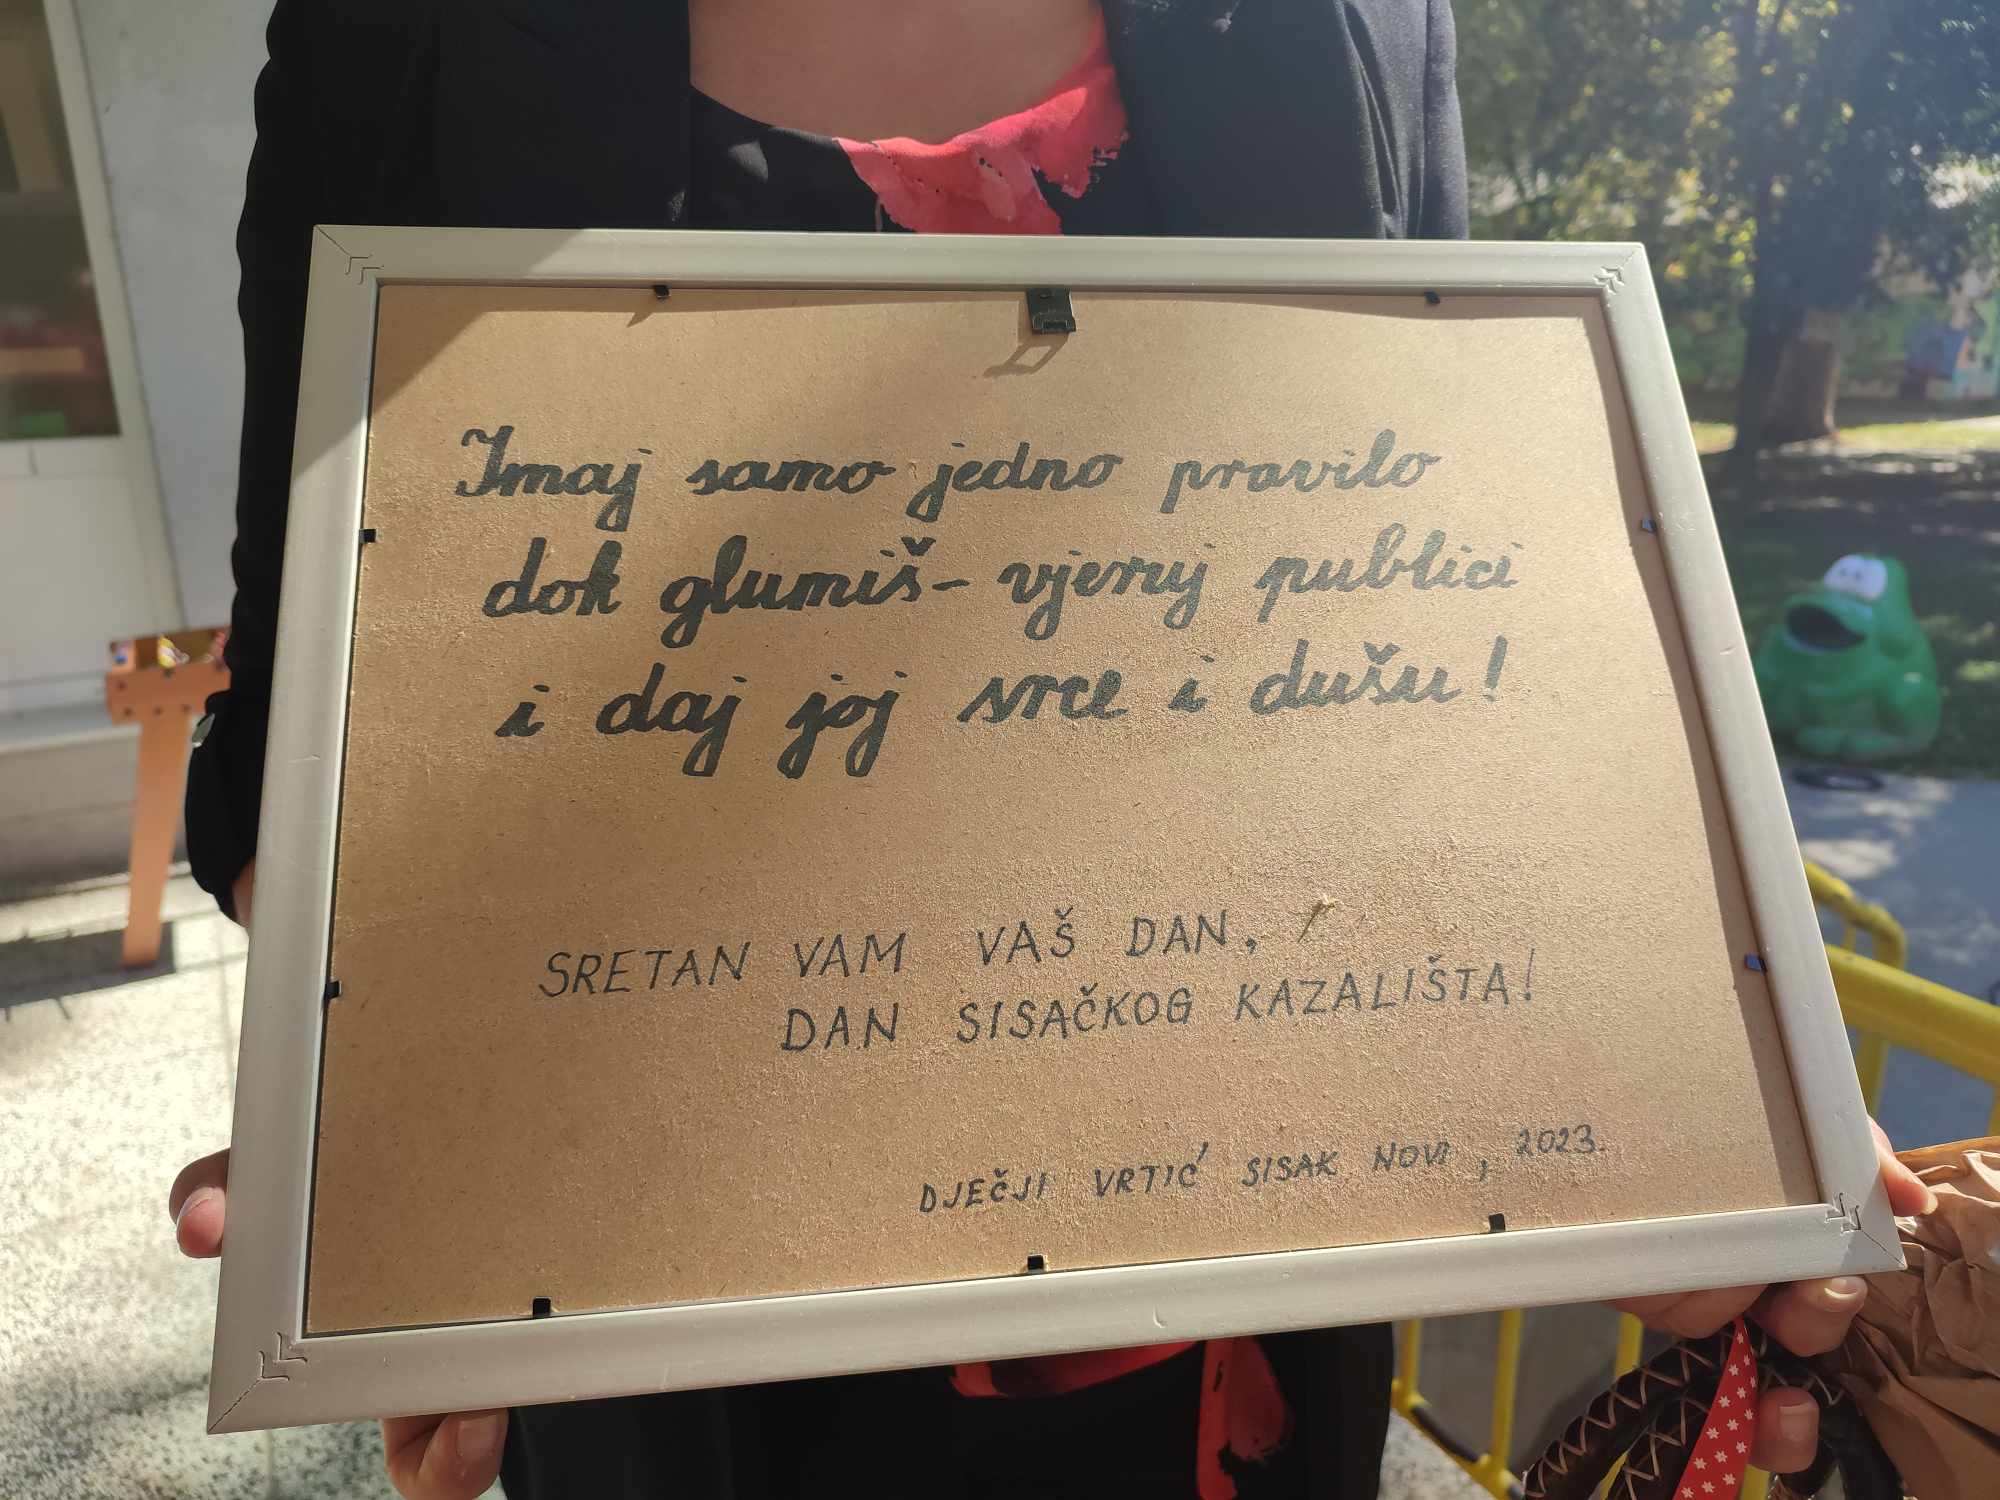 Imaj samo jedno pravilo
dok glumiš - vjeruj publici
i daj joj srce i dušu!
SRETAN VAM VAŠ DAN,
DAN SISAČKOG KAZALIŠTA!
DJEČJI VRTIĆ SISAK NOVI, 2023.